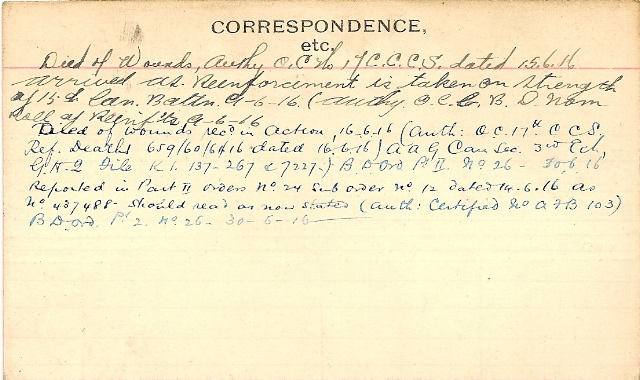 CORRESPONDENCE,
etc.
Died of Wounds, Authy O.C. No 17 C.C.C.S. dated 15.6.16
arrived as Reinforcement is taken on strength
of 15th Can. Battn. 9-6-16 (Authy. O.C.C. B. D. Nom
Roll of Reinf'ts 9-6-16
Died of wounds rec'd in action, 16-6-16 (Auth: O.C. 17th C.C.S.
Ref. Deaths 659/60/6/16 dated 16/6/16) A A G Can Sec. 3rd Ech,
G.H.Q File K1. 137-267 & 7227.) B D Ord Pt II. No 26- 30.6.16
Reported in Part II orders No 24 Sub order No 12 dated 14.6.16 as
No 437488- Should read as now stated (Auth: Certified No A F B 103)
B D ord. Pt 2. No 26- 30-6-16